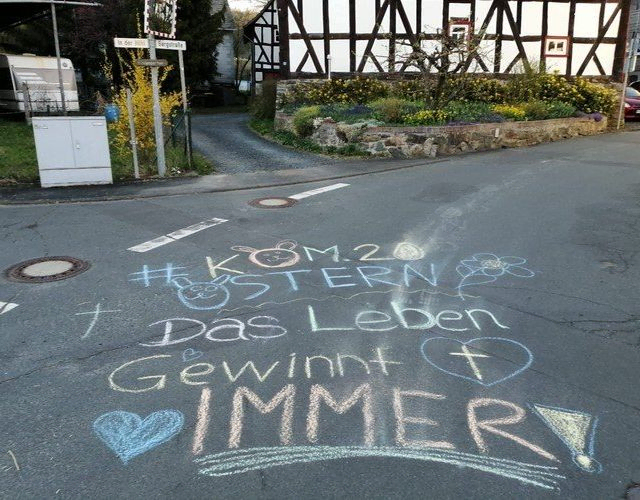 In der Bergstraße
KOM.20
#OSTERN
Das Leben
Gewinnt
IMMER!